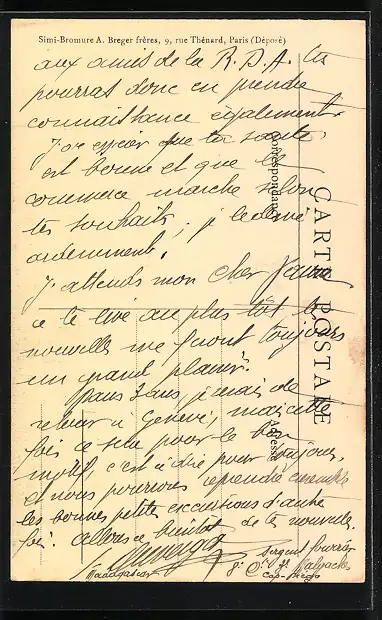 Simi-Bromure A. Breger frères, 9, rue Thénard, Paris (Déposé)
aux amis de la R.D.A. tu
pourras donc en prendre
connaissance également.
J'ose espérer que ta santé
est bonne et que le
commerce marche selon
tes souhaits; je le désire
ardemment.
J'attends mon cher
à te lire au plus tôt, tes
nouvelles me feront toujours
un grand plaisir.
Dans 3 ans, je serai de
retour à Genève, mais cette
fois ce sera pour le bon
motif, c'est à dire pour toujours,
et nous pourrons reprendre ensemble
les bonnes petites excursions d'autre
fois. Allons à bientôt de tes nouvelles.
Sergent fourrier
8e Cie Malgaches
Madagascar
Cap-Diego
CARTE POSTALE
Correspondance
Adresse